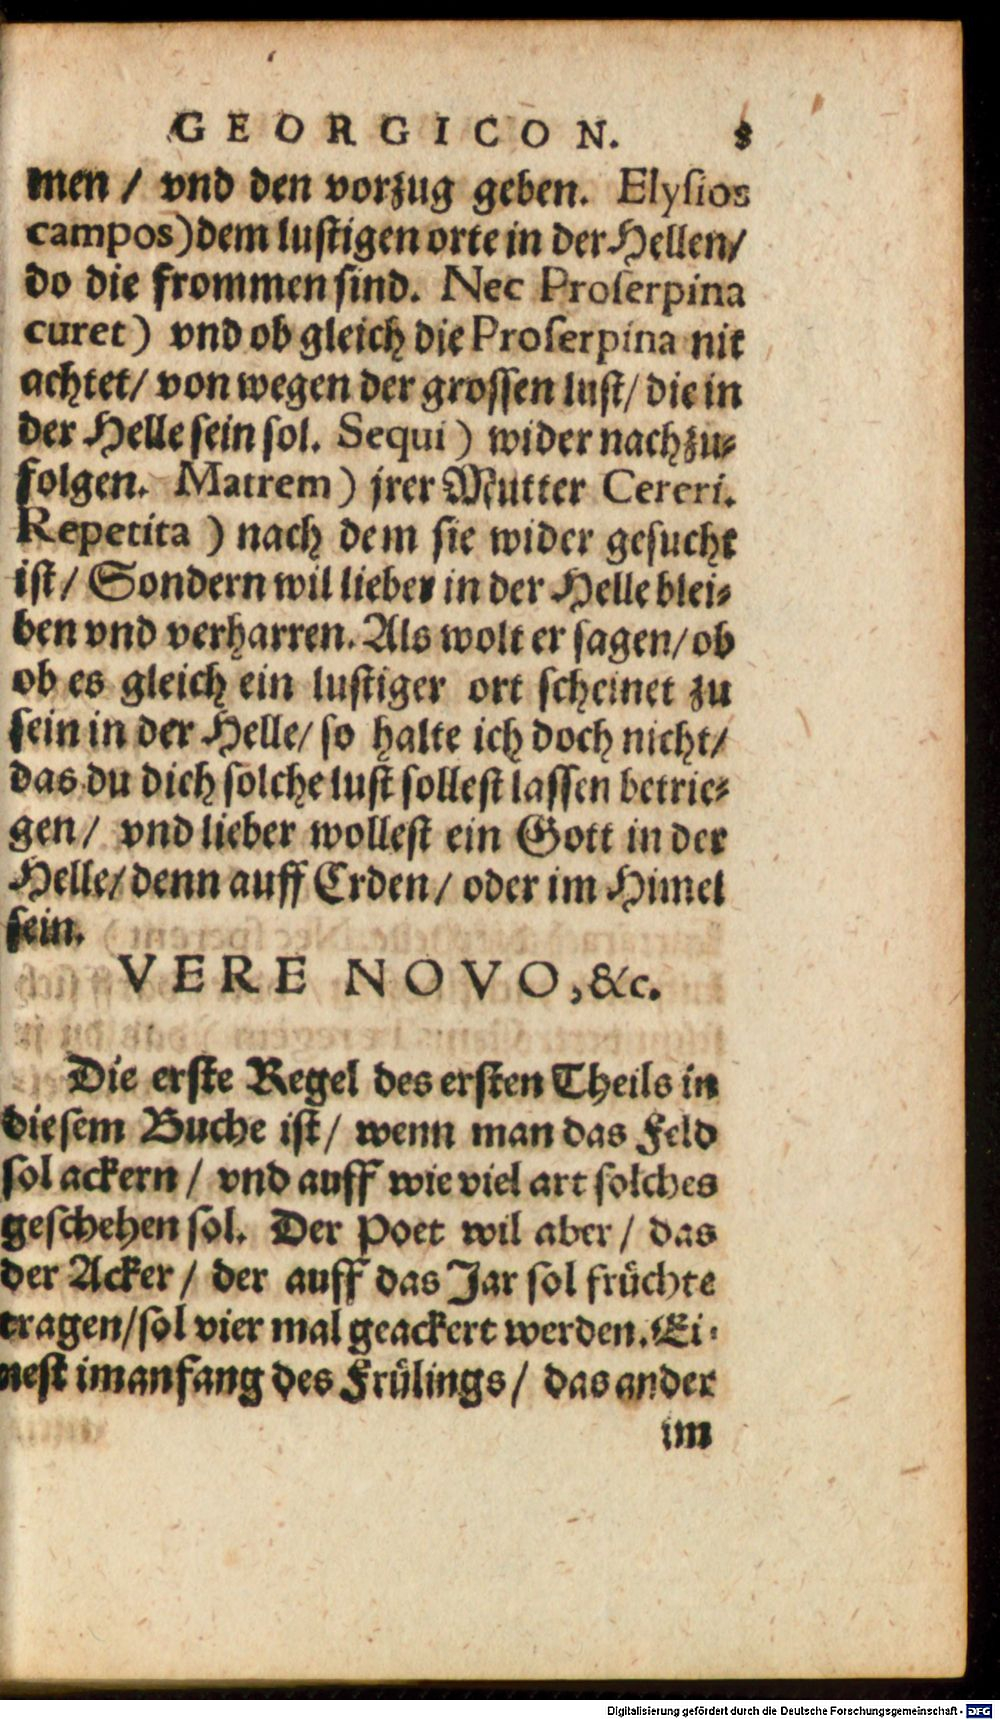 GEORGICON. 8
men / vnd den vorzug geben. Elyſios
campos) dem luſtigen orte in der Hellen/
do die frommen ſind. Nec Proſerpina
curet) vnd ob gleich die Proſerpina nit
achtet/ von wegen der groſſen luſt/ die in
der Helle ſein ſol. Sequi) wider nachzu-
folgen. Matrem) jrer Mutter Cereri.
Repetita) nach dem ſie wider geſucht
iſt/ Sondern wil lieber in der Helle blei-
ben vnd verharren. Als wolt er ſagen/ ob
ob es gleich ein luſtiger ort ſcheinet zu
ſein in der Helle/ ſo halte ich doch nicht/
das du dich ſolche luſt ſolleſt laſſen betrie-
gen/ vnd lieber wolleſt ein Gott in der
Helle/ denn auff Erden/ oder im Himel
ſein.
VERE NOVO, &c.
Die erſte Regel des erſten Theils in
dieſem Buche iſt/ wenn man das Feld
ſol ackern / vnd auff wie viel art ſolches
geſchehen ſol. Der Poet wil aber/ das
der Acker/ der auff das Jar ſol früchte
tragen/ ſol vier mal geackert werden. Ei-
neſt im anfang des Frülings/ das ander
im
Digitalisierung gefördert durch die Deutsche Forschungsgemeinschaft - DFG